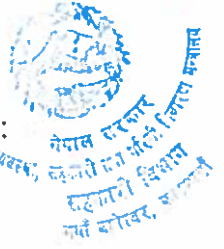 नेपाल सरकार
सहकारी तथा गरिबी निवारण मन्त्रालय
सहकारी विभाग
नयाँ बानेश्वर,